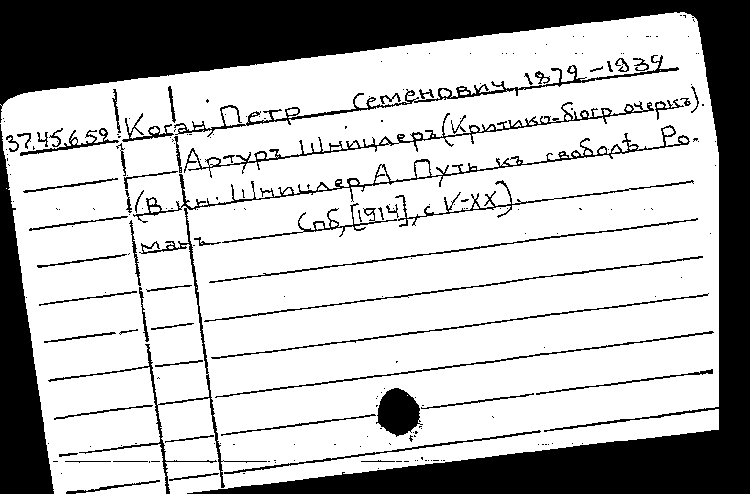 37.45.6.59 Коган, Петр Семенович, 1879-1939
Артуръ Шницлеръ (Критико-біогр очеркъ).
(В кн: Шницлер, А. Путь къ свободѣ. Ро-
манъ Спб, [1914], с V-XX).